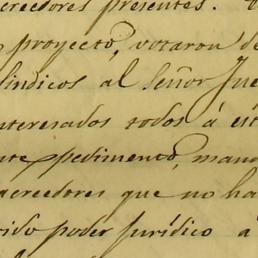 creedores presentes.
proyectó, votaron de
Sindicos al Señor Jue
nteresados todos á est
nte pedimento, mand
acreedores que no ha
rido poder jurídico a